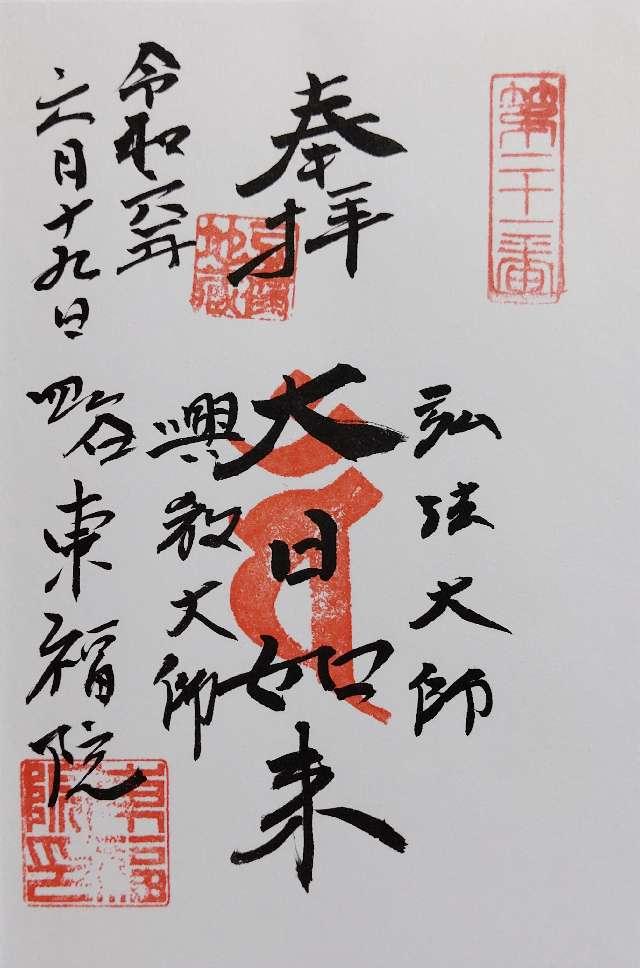 第二十一番
奉拝
弘法大師
大日如来
興教大師
令和六年
六月十九日
四谷東福院
東福院印